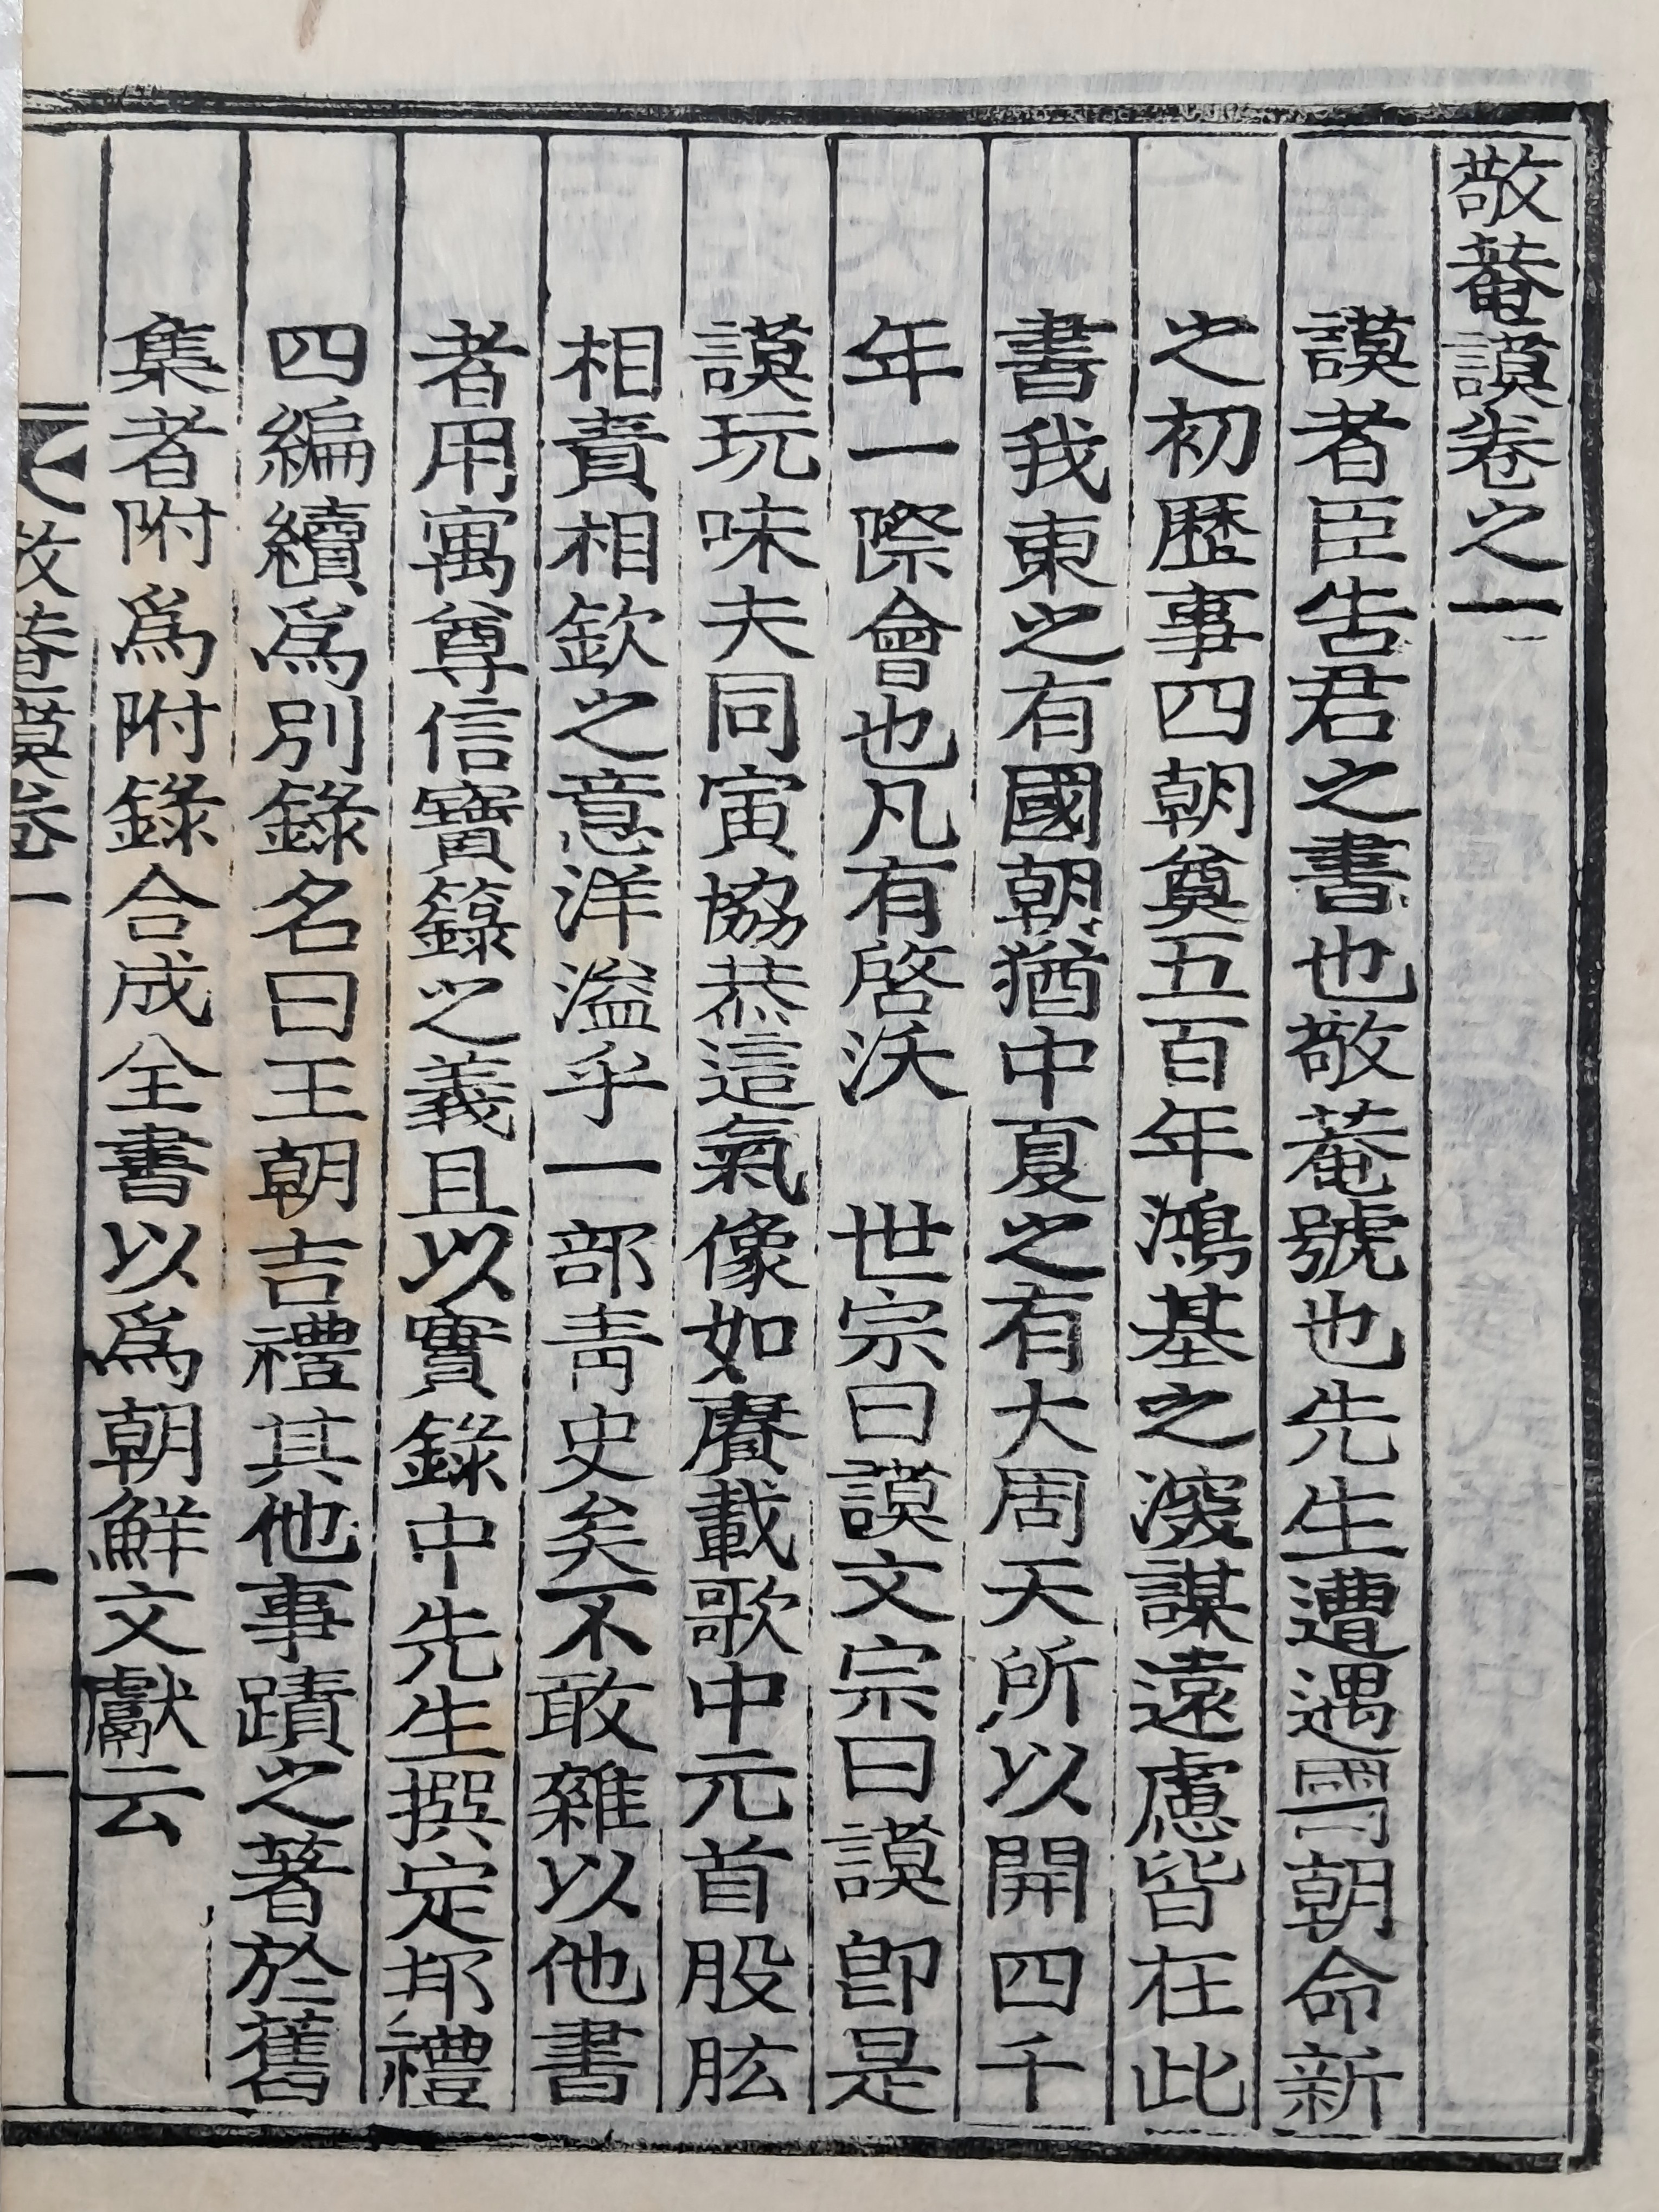 敬菴謨卷之一
謨者臣告君之書也敬菴號也先生遭遇二字朝命新
之初歷事四朝奠五百年鴻基之深謀遠慮皆在此
書我東之有國朝猶中夏之有大周天所以開四千
年一際會也凡有啓沃 世宗曰謨文宗曰謨卽是
謨玩味夫同寅協恭這氣像如賡載歌中元首股肱
相責相欽之意洋溢乎一部靑史矣不敢雜以他書
者用寓尊信寶籙之義且以實錄中先生撰定邦禮
四編續爲別錄名曰王朝吉禮其他事蹟之著於舊
集者附爲附錄合成全書以爲朝鮮文獻云
敬菴謨卷一
一